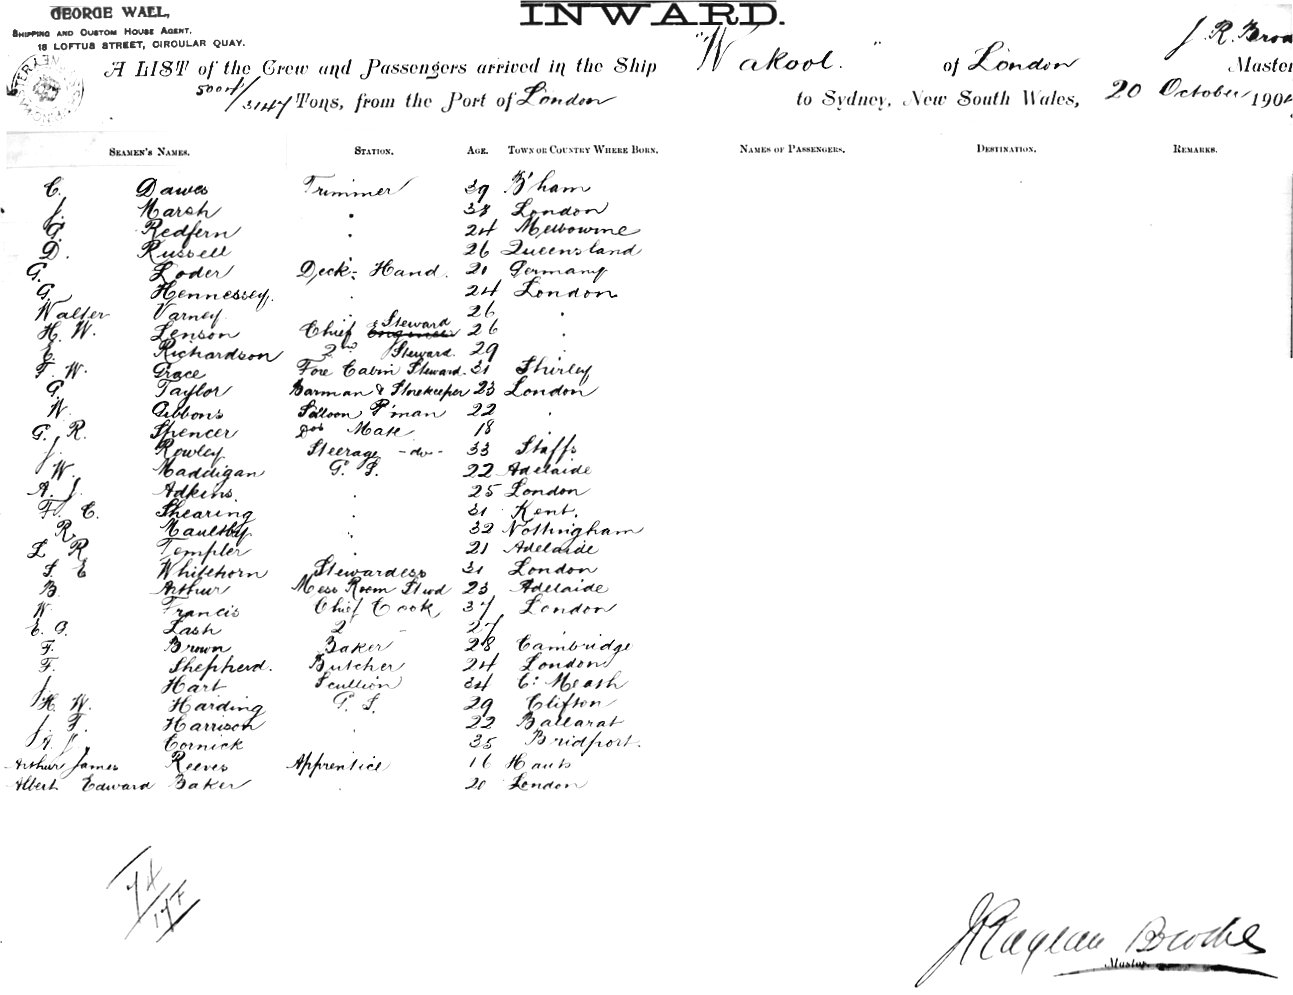 GEORGE WALL,
SHIPPING AND CUSTOM HOUSE AGENT.
18 LOFTUS STREET, CIRCULAR QUAY.
INWARD.
A LIST of the Crew and Passengers arrived in the Ship "Wakool." of London J. R. Master
5004/3147 Tons, from the Port of London to Sydney, New South Wales, 20 October 190
SEAMEN'S NAMES. STATION. AGE. TOWN OR COUNTRY WHERE BORN. NAMES OF PASSENGERS. DESTINATION. REMARKS.
C. Dawes Trimmer 39 B'ham
J. Marsh " 38 London
G. Redfern " 24 Melbourne
D. Russell " 26 Queensland
G. Loder Deck-Hand. 21 Germany
G. Hennessey. " 24 London
Walter Varney " 26 "
H. W. Lenson Chief Steward 26 "
E. Richardson 2nd Steward. 29 "
F. W. Grace Fore Cabin Steward. 31 Shirley
G. Taylor Barman & Storekeeper 23 London
W. Gibbons Saloon P'man 22 "
G. R. Spencer Do Mate 18 "
J. Rowley Steerage -do- 33 Staffs
W. Maddigan G. S. 22 Adelaide
A. J. Adkins. " 25 London
F. C. Shearing " 31 Kent.
R. Maultby " 32 Nottingham
L R Templer " 21 Adelaide
S. E Whitehorn Stewardess 31 London
B. Arthur Mess Room Stwd 23 Adelaide
W. Francis Chief Cook 37 London
E. G. Lash 2 " 27 "
F. Brown Baker 28 Cambridge
F. Shepherd. Butcher 24 London
J Hart Scullion 34 Co. Meath
H. W. Harding G. S. 29 Clifton
J. F. Harrison " 22 Ballarat
A. J. Cornick " 35 Bridport.
Arthur James Reeves Apprentice 16 Hants
Albert Edward Baker " 20 London
74/174
Master